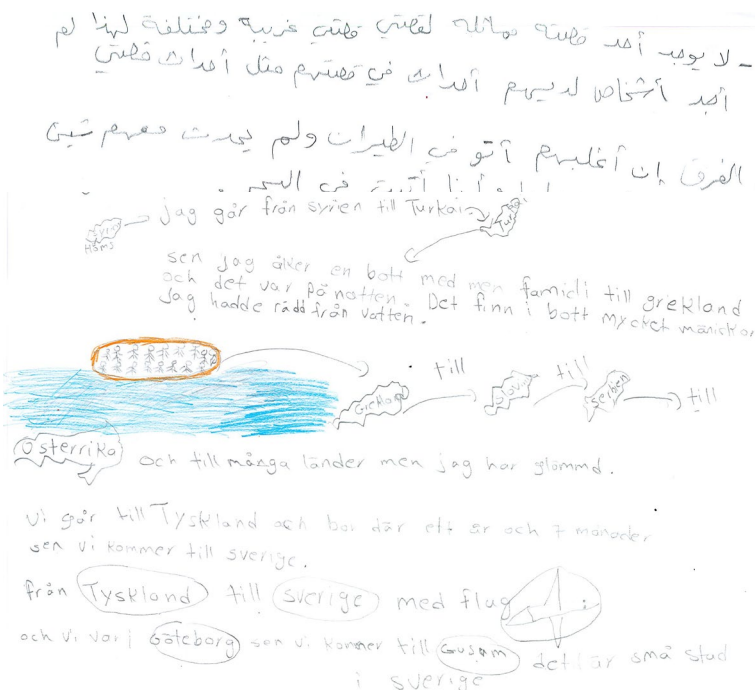 - لا يوجد أحد قصته مماثله لقصتي قصتي غريبة ومختلفة لهذا لم
أجد أشخاص لديهم أحداث في قصتهم مثل أحداث قصتي
الفرق إن أغلبهم آتو في الطيران ولم يحدث معهم شيئ
أنا أتيت في البحر
Homs → jag går från syrien till Turkai →
sen jag åker en bott med men familji till grekland
och det var på natten. Det finn i bott mycket mänickor
jag hadde rädd från vatten.
Grekland till till serbien till
Österrika och till många länder men jag har glömmd.
vi går till Tyskland och boi där ett år och 7 månader
sen vi kommer till sverige.
från Tyskland till sverige med flug
och vi var i Göteborg sen vi kommer till det är små stad
i sverige